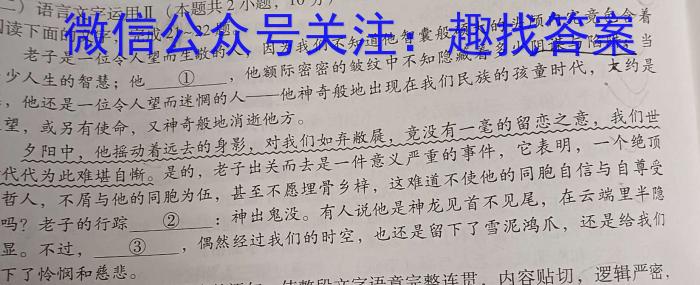 二）语言文字运用Ⅱ（本题共2小题，10分）
微信公众号关注：趣找答案
阅读下面的文字，完成21~22题。
老子是一位令人望而生敬的
因为我们不知道他智囊般
含着
少人生的智慧；他 ① ，他额际密密的皱纹中不知隐藏着多少阴谋与陷阱；当
，他还是一位令人望而迷惘的人——他神奇般地出现在我们民族的孩童时代，大约是
望，或另有使命，又神奇般地消逝他方。
夕阳中，他摇动着远去的身影，对我们如弃敝屣，竟没有一毫的留恋之意，我们世
代代为此难堪自惭。是的，老子出关而去是一件意义严重的事件，它表明，一个绝顶
哲人，不屑与他的同胞为伍，甚至不愿埋骨乡梓，这难道不使他的同胞自信与自尊受
吗？老子的行踪 ② ：神出鬼没。有人说他是神龙见首不见尾，在云端里半隐
显。不过， ③ ，偶然经过我们的时空，也还是留下了雪泥鸿爪，还是给我们
下了怜悯和慈悲。
使整段文字语意完整连贯，内容贴切，逻辑严密，